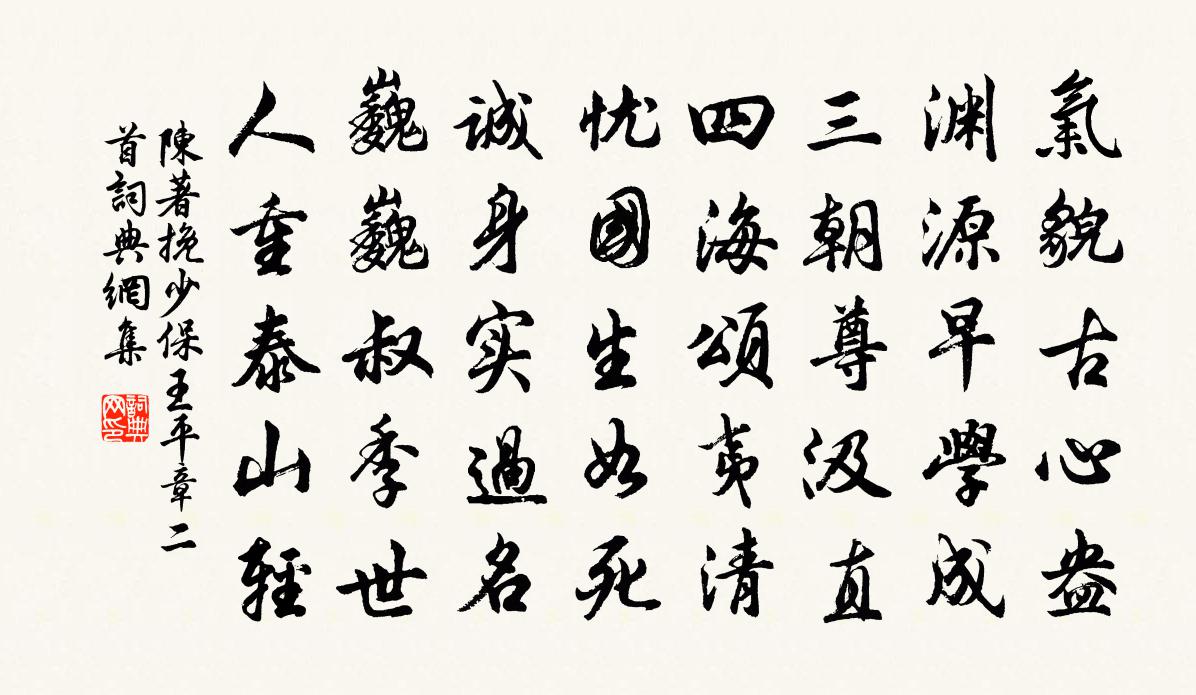 氣貌古心盎
淵源早學成
三朝尊汲直
四海頌夷清
忧國生如死
誠身实過名
巍巍叔季世
人重泰山輕
陳著挽少保王平章二
首詞典網集
詞典
网印